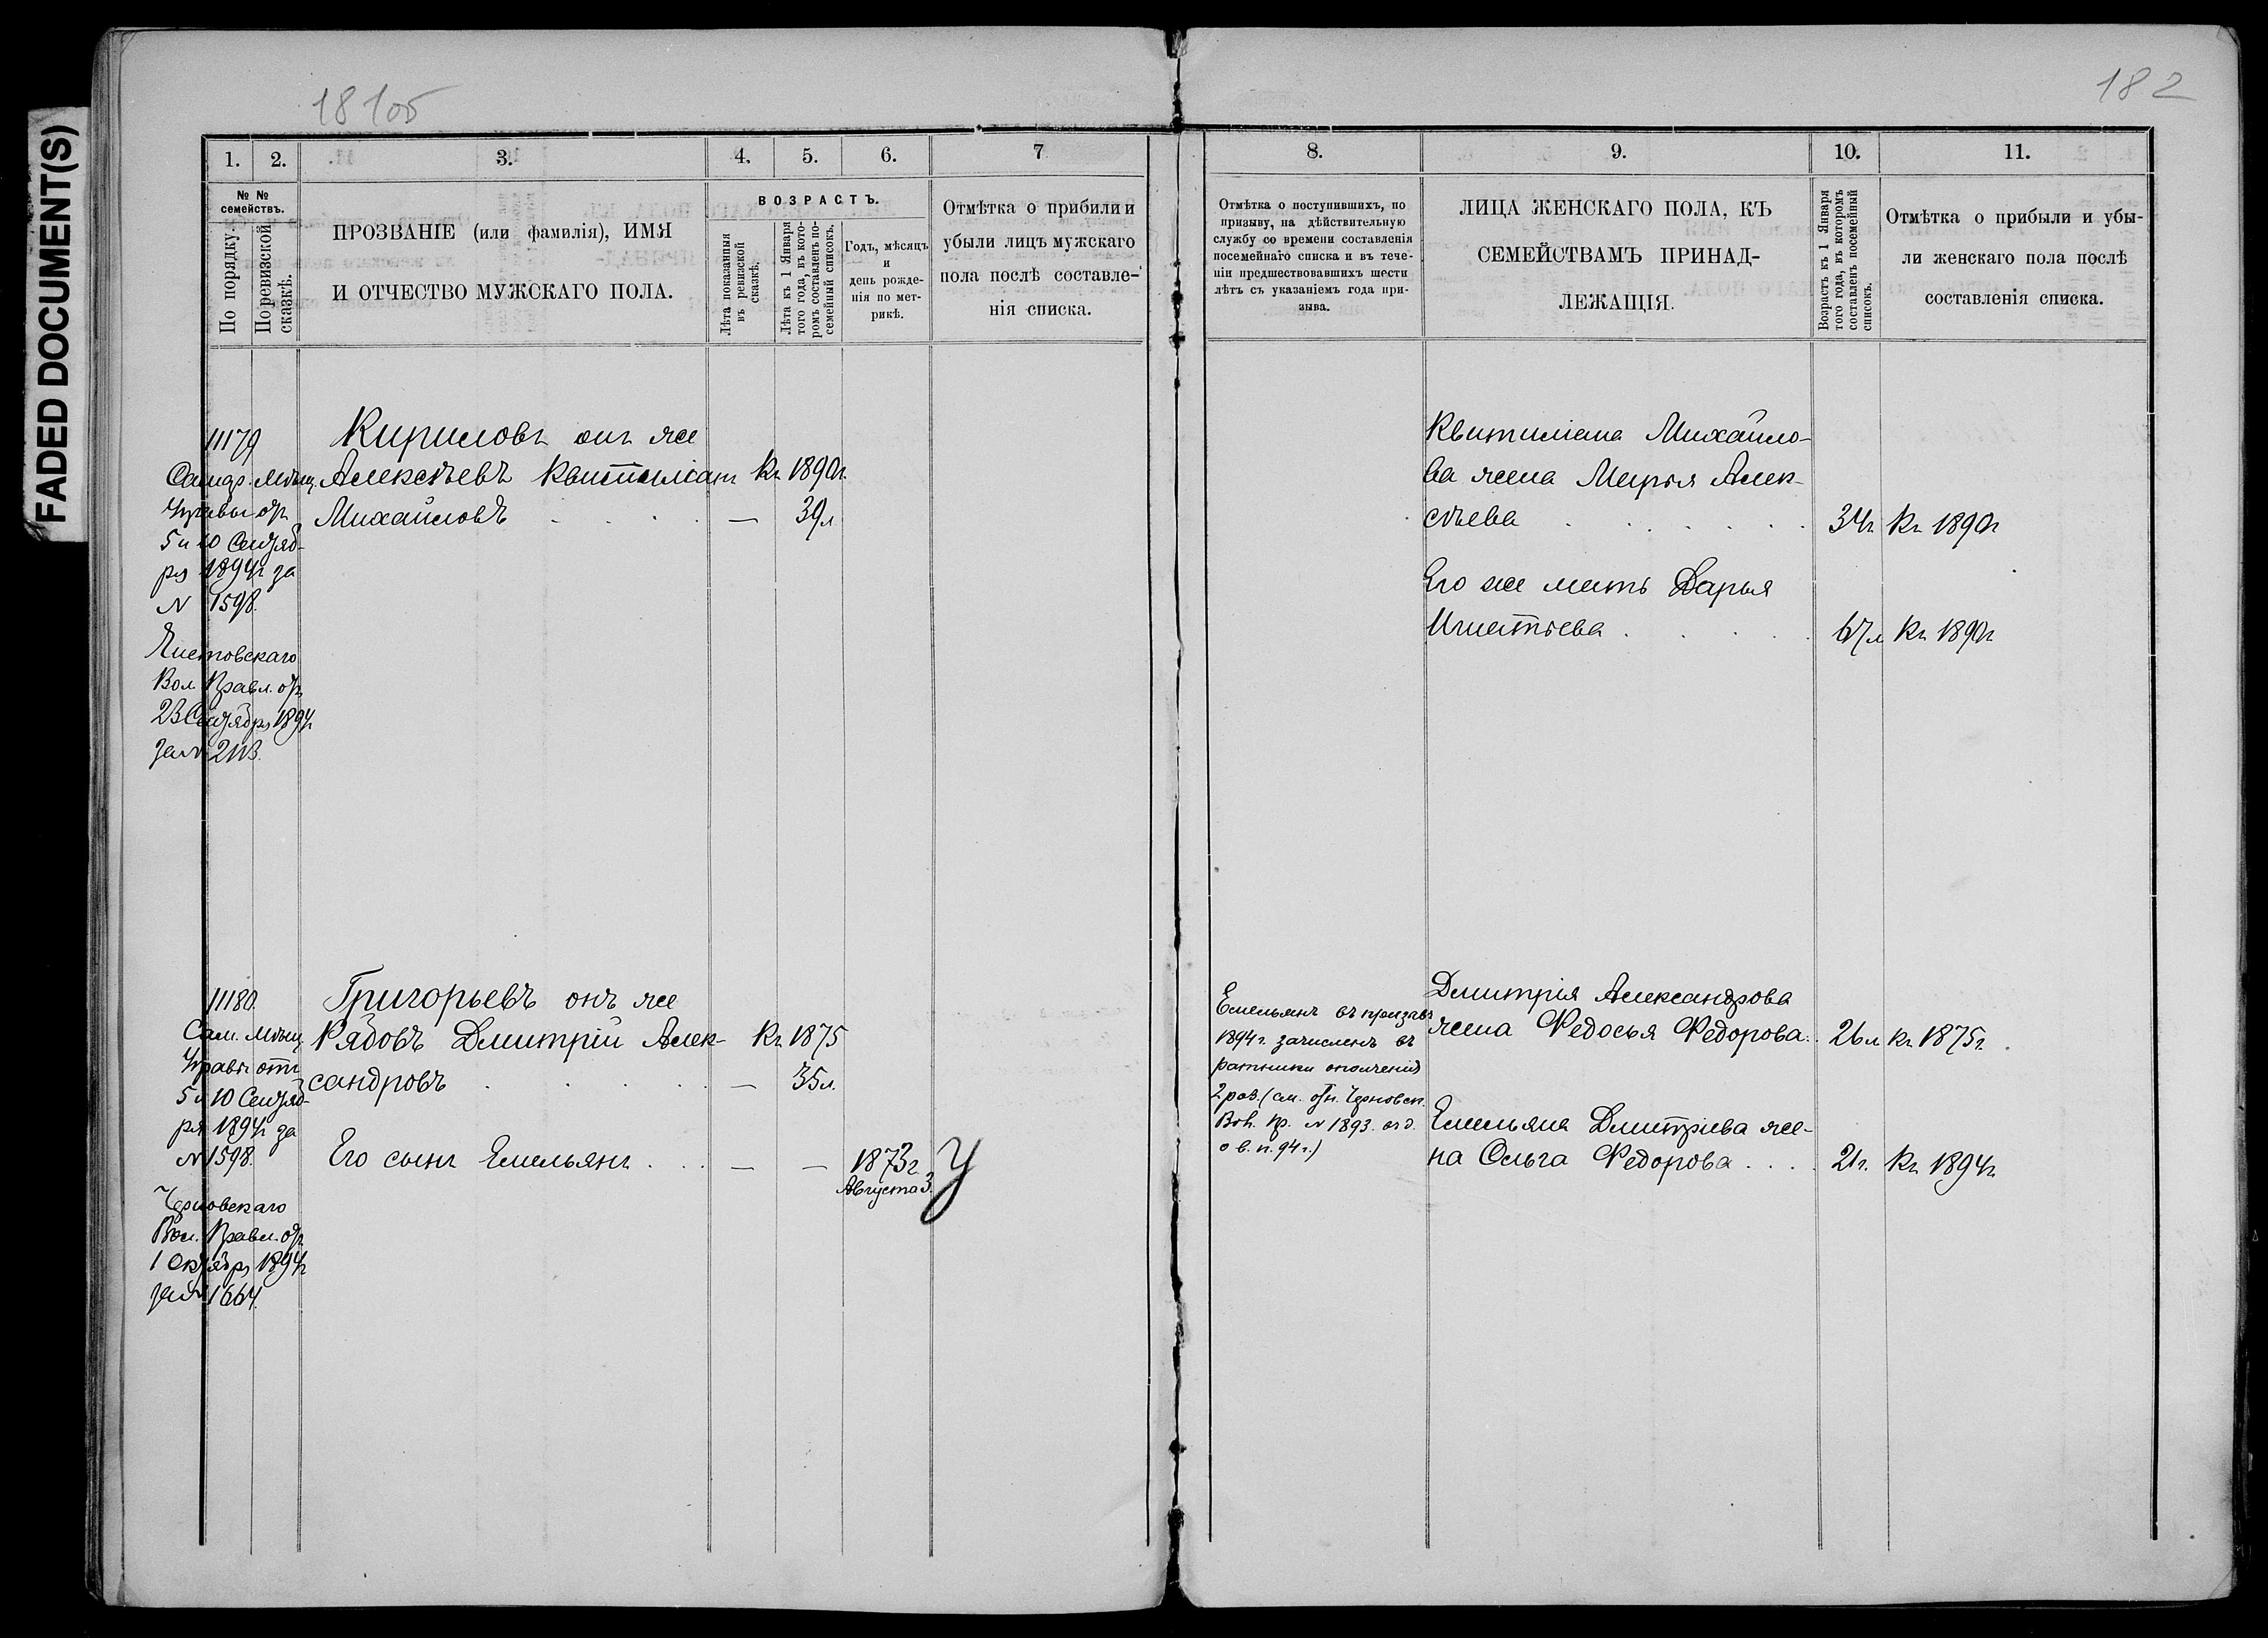 FADED DOCUMENT(S)
181об
182
1.
2.
3.
4.
5.
6.
7
№ №
семействъ.
По порядку.
По ревизской
сказкѣ.
ПРОЗВАНІЕ (или фамилія), ИМЯ
И ОТЧЕСТВО МУЖСКАГО ПОЛА.
ВОЗРАСТЪ.
Лѣта показанныя
въ ревизской
сказкѣ.
Лѣта къ 1 Января
того года, въ кото-
ромъ составленъ по-
семейный списокъ.
Годъ, мѣсяцъ
и
день рожде-
нія по мет-
рикѣ.
Отмѣтка о прибили и
убыли лицъ мужскаго
пола послѣ составле-
нія списка.
11179
Самар. Мѣщ.
Управы отъ
5 и 10 Сентяб-
ря 1894г за
N 1598.
Вол. Правл. отъ
23 Сентября 1894г
за N 2113.
Кириловъ онъ же
Алексѣевъ Квитиліанъ Къ 1890г.
Михайловъ — 39л
11180.
Сам. Мѣщ.
Управы отъ
5 и 10 Сентяб-
ря 1894г за
N 1598.
Черновскаго
Вол. Правл. отъ
1 Октября 1894г
за N 1664.
Григорьевъ онъ же
Рядовъ Дмитрій Алек- Къ 1875
сандровъ — 35л.
Его сынъ Емельянъ — — 1873г.
Августа 3.
У
8.
9.
10.
11.
Отмѣтка о поступившихъ, по
призыву, на дѣйствительную
службу со времени составленія
посемейнаго списка и въ тече-
ніи предшествовавшихъ шести
лѣтъ съ указаніемъ года при-
зыва.
ЛИЦА ЖЕНСКАГО ПОЛА, КЪ
СЕМЕЙСТВАМЪ ПРИНАД-
ЛЕЖАЩІЯ.
Возрастъ къ 1 Января
того года, въ которомъ
составленъ посемейный
списокъ.
Отмѣтка о прибыли и убы-
ли женскаго пола послѣ
составленія списка.
Квитиліана Михайло-
ва жена Марья Алек-
сѣева 34г Къ 1890г
Его же мать Дарья
Игнатьева 67л Къ 1890г
Емельянъ въ призывъ
1894г. зачисленъ въ
ратники ополченія
2 раз. (см. отн. Черновск.
Вол. Пр. N 1893.
о в. п. 94г.)
Дмитрія Александрова
жена Федосья Федорова. 26л Къ 1875г.
Емельяна Дмитріева же-
на Ольга Федорова 21г. Къ 1894г.